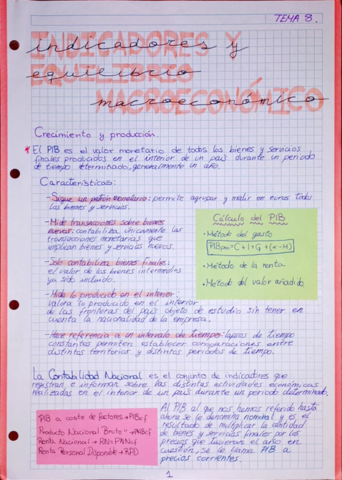 TEMA 8.
INDICADORES Y
EQUILIBRIO
MACROECONÓMICO
indicadores y
equilibrio
macroeconómico
Crecimiento y producción.
* El PIB es el valor monetario de todos los bienes y servicios
finales producidos en el interior de un país durante un periodo
de tiempo determinado, generalmente un año.
Características:
- Sigue un patrón monetario: permite agrupar y medir en euros todos
los bienes y servicios.
- Mide transacciones sobre bienes
nuevos: contabiliza únicamente las
transacciones monetarias que
implican bienes y servicios nuevos.
- Solo contabiliza bienes finales:
el valor de los bienes intermedios
ya está incluido.
- Mide lo producido en el interior:
valora lo producido en el interior
de las fronteras del país objeto de estudio sin tener en
cuenta la nacionalidad de la empresa.
- Hace referencia a un intervalo de tiempo: lapsos de tiempo
constantes permiten establecer comparaciones entre
distintos territorios y distintos periodos de tiempo.
Cálculo del PIB
• Método del gasto
PIBpm = C + I + G + (X - M)
• Método de la renta
• Método del valor añadido
La Contabilidad Nacional es el conjunto de indicadores que
registran e informan sobre las distintas actividades económicas
realizadas en el interior de un país durante un periodo determinado.
PIB a coste de factores → PIBcf
Producto Nacional Bruto → PNBcf
Renta Nacional → RN = PNNcf
Renta Personal Disponible → RPD
Al PIB al que nos hemos referido hasta
ahora se le denomina nominal y es el
resultado de multiplicar la cantidad
de bienes y servicios finales por los
precios que tuvieran el año en
cuestión, se le llama PIB a
precios corrientes.
1